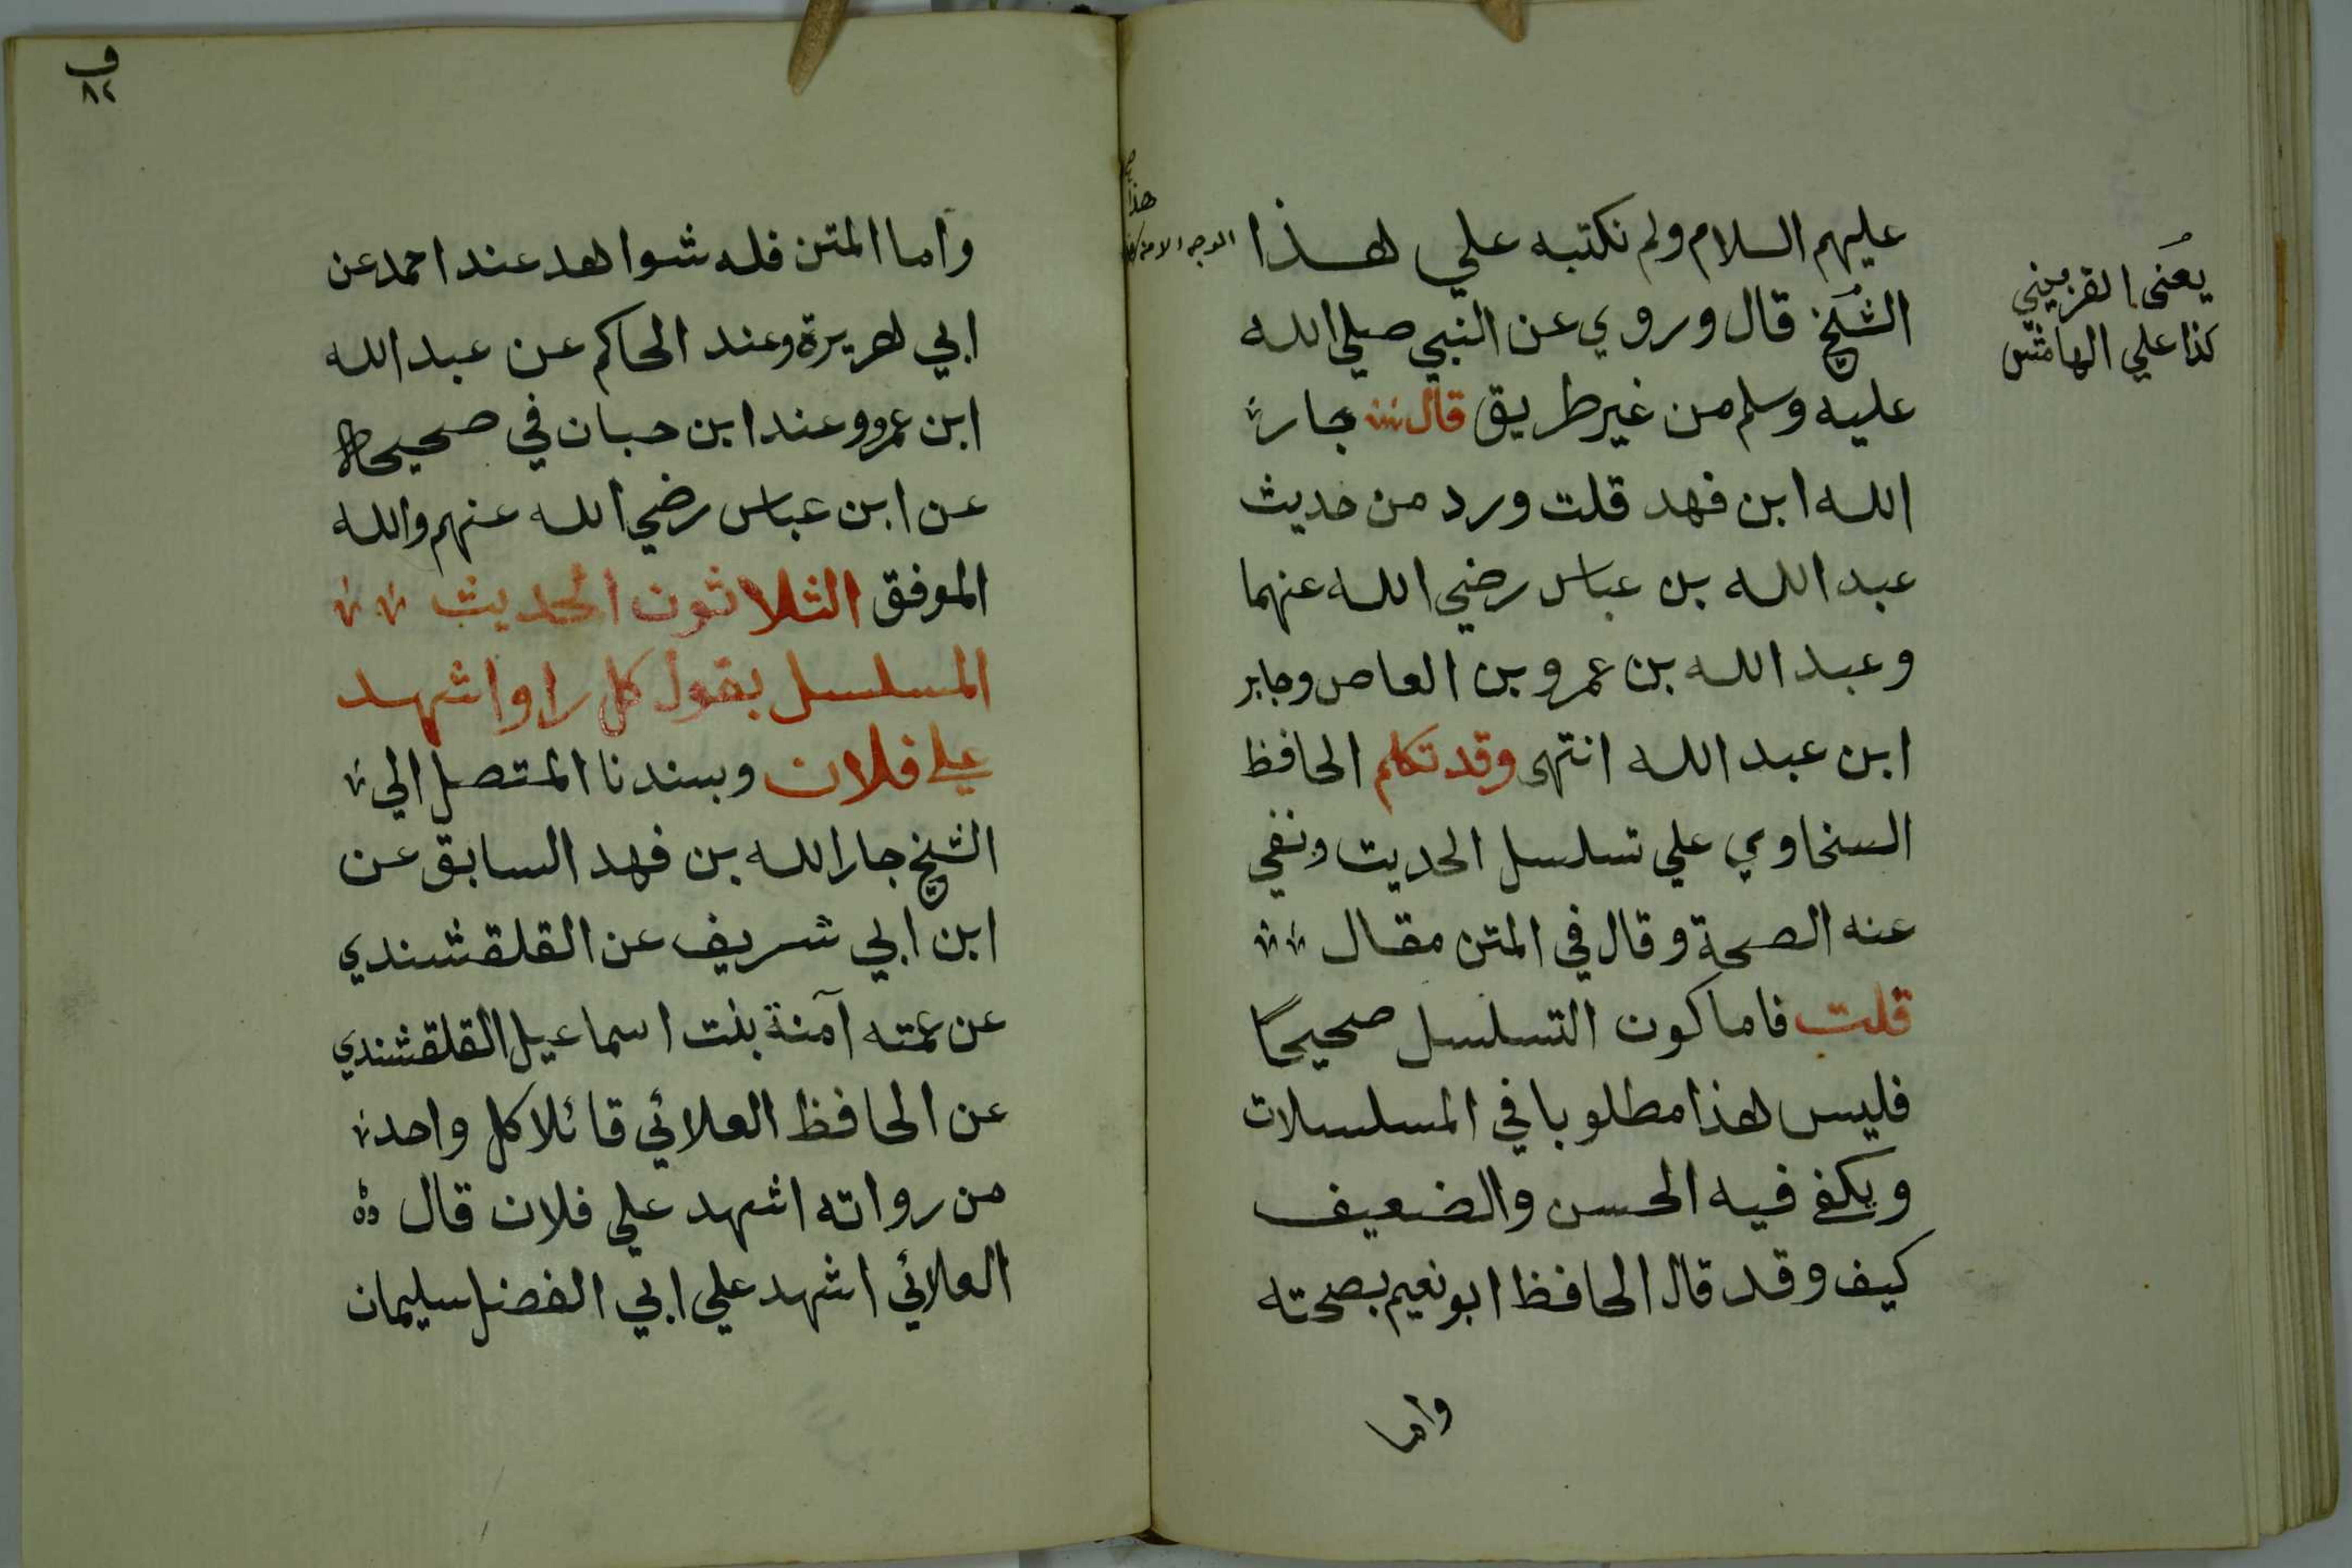 عليهم السلام ولم نكتبه علي هذا
الوجه الا من
هذا
الشيخ قال وروي عن النبي صلي الله
عليه وسلم من غير طريق قال جار
الله ابن فهد قلت ورد من حديث
عبد الله بن عباس رضي الله عنهما
وعبد الله بن عمرو بن العاص وجابر
ابن عبد الله انتهى وقد تكلم الحافظ
السخاوي علي تسلسل الحديث ونفي
عنه الصحة وقال في المتن مقال
قلت فاما كون التسلسل صحيحًا
فليس هذا مطلوبا في المسلسلات
ويكفي فيه الحسن والضعيف
كيف وقد قال الحافظ ابو نعيم بصحته
واما
يعنى القزويني
كذا علي الهامش
ف
٨٢
واما المتن فله شواهد عند احمد عن
ابي هريرة وعند الحاكم عن عبد الله
ابن عمرو وعند ابن حبان في صحيحه
عن ابن عباس رضي الله عنهم والله
الموفق الثلاثون الحديث
المسلسل بقول كل راو اشهد
علي فلان وبسندنا المتصل الي
الشيخ جار الله بن فهد السابق عن
ابن ابي شريف عن القلقشندي
عن عمته آمنة بنت اسماعيل القلقشندي
عن الحافظ العلائي قائلا كل واحد
من رواته اشهد علي فلان قال
العلائي اشهد علي ابي الفضل سليمان